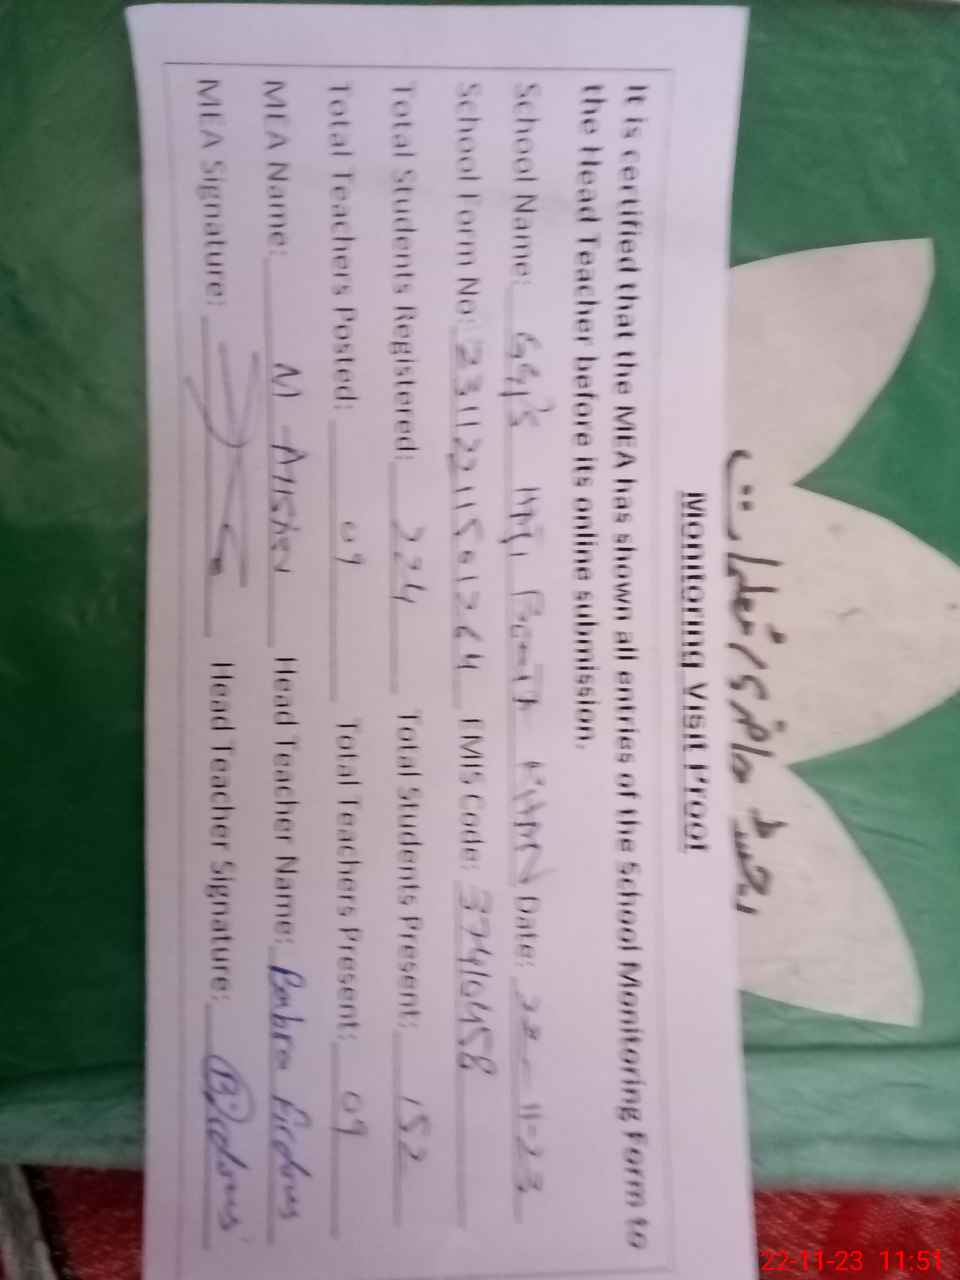 بحد حاضری / تعینات
Monitoring Visit Proof
It is certified that the MEA has shown all entries of the School Monitoring Form to
the Head Teacher before its online submission.
School Name: Date: 22-11-23
School Form No: 23112211501264 EMIS Code: 37410458
Total Students Registered: 224 Total Students Present: 152
Total Teachers Posted: 09 Total Teachers Present: 09
MEA Name: M Head Teacher Name: Babra Firdous
MEA Signature: Head Teacher Signature: BFirdous
22-11-23 11:51